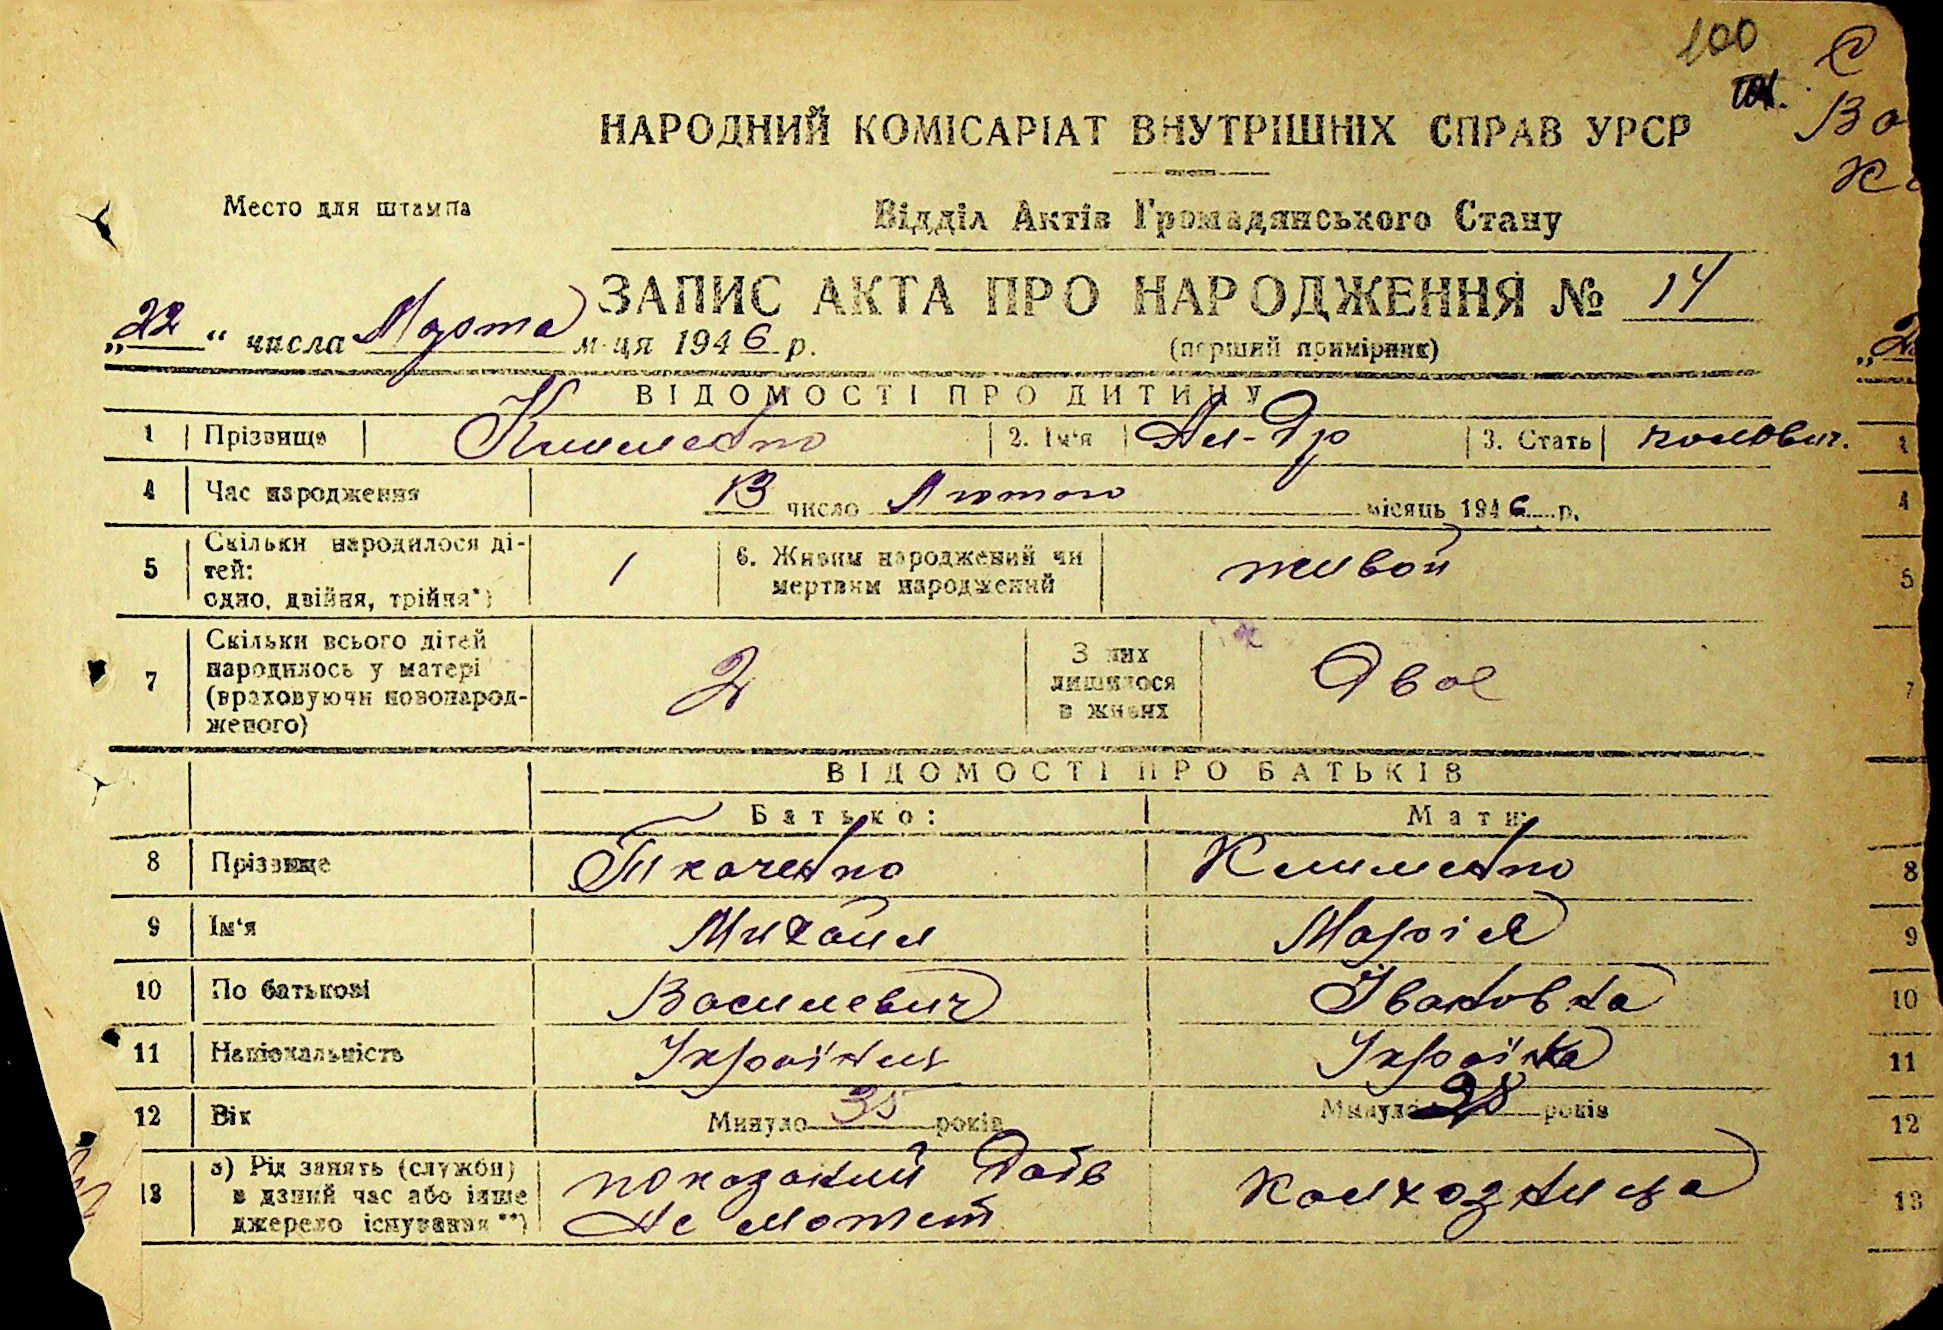 100
101.
С
НАРОДНИЙ КОМІСАРІАТ ВНУТРІШНІХ СПРАВ УРСР
Во
Место для штампа
Відділ Актів Громадянського Стану
ЗАПИС АКТА ПРО НАРОДЖЕННЯ № 14
„22“ числа Марта м-ця 1946 р.
(перший примірник)
ВІДОМОСТІ ПРО ДИТИНУ
1 Прізвище Клименко 2. Ім'я Ал-др 3. Стать чолович. 1
4 Час народження 13 число Лютого місяць 1946 р. 4
5 Скільки народилося ді-
тей:
одно, двійня, трійня*) 1 6. Живим народжений чи
мертвим народжений живой 5
7 Скільки всього дітей
народилось у матері
(враховуючи новонарод-
женого) 2 З них
лишилося
в живих Двое 7
ВІДОМОСТІ ПРО БАТЬКІВ
Батько: Мати:
8 Прізвище Ткаченко Клименко 8
9 Ім'я Михаил Марія 9
10 По батькові Василевич Івановна 10
11 Національність Українец Українка 11
12 Вік Минуло 35 років Минуло 28 років 12
13 а) Рід занять (служби)
в даний час або інше
джерело існування**) показаний дать
не может Колхозница 13